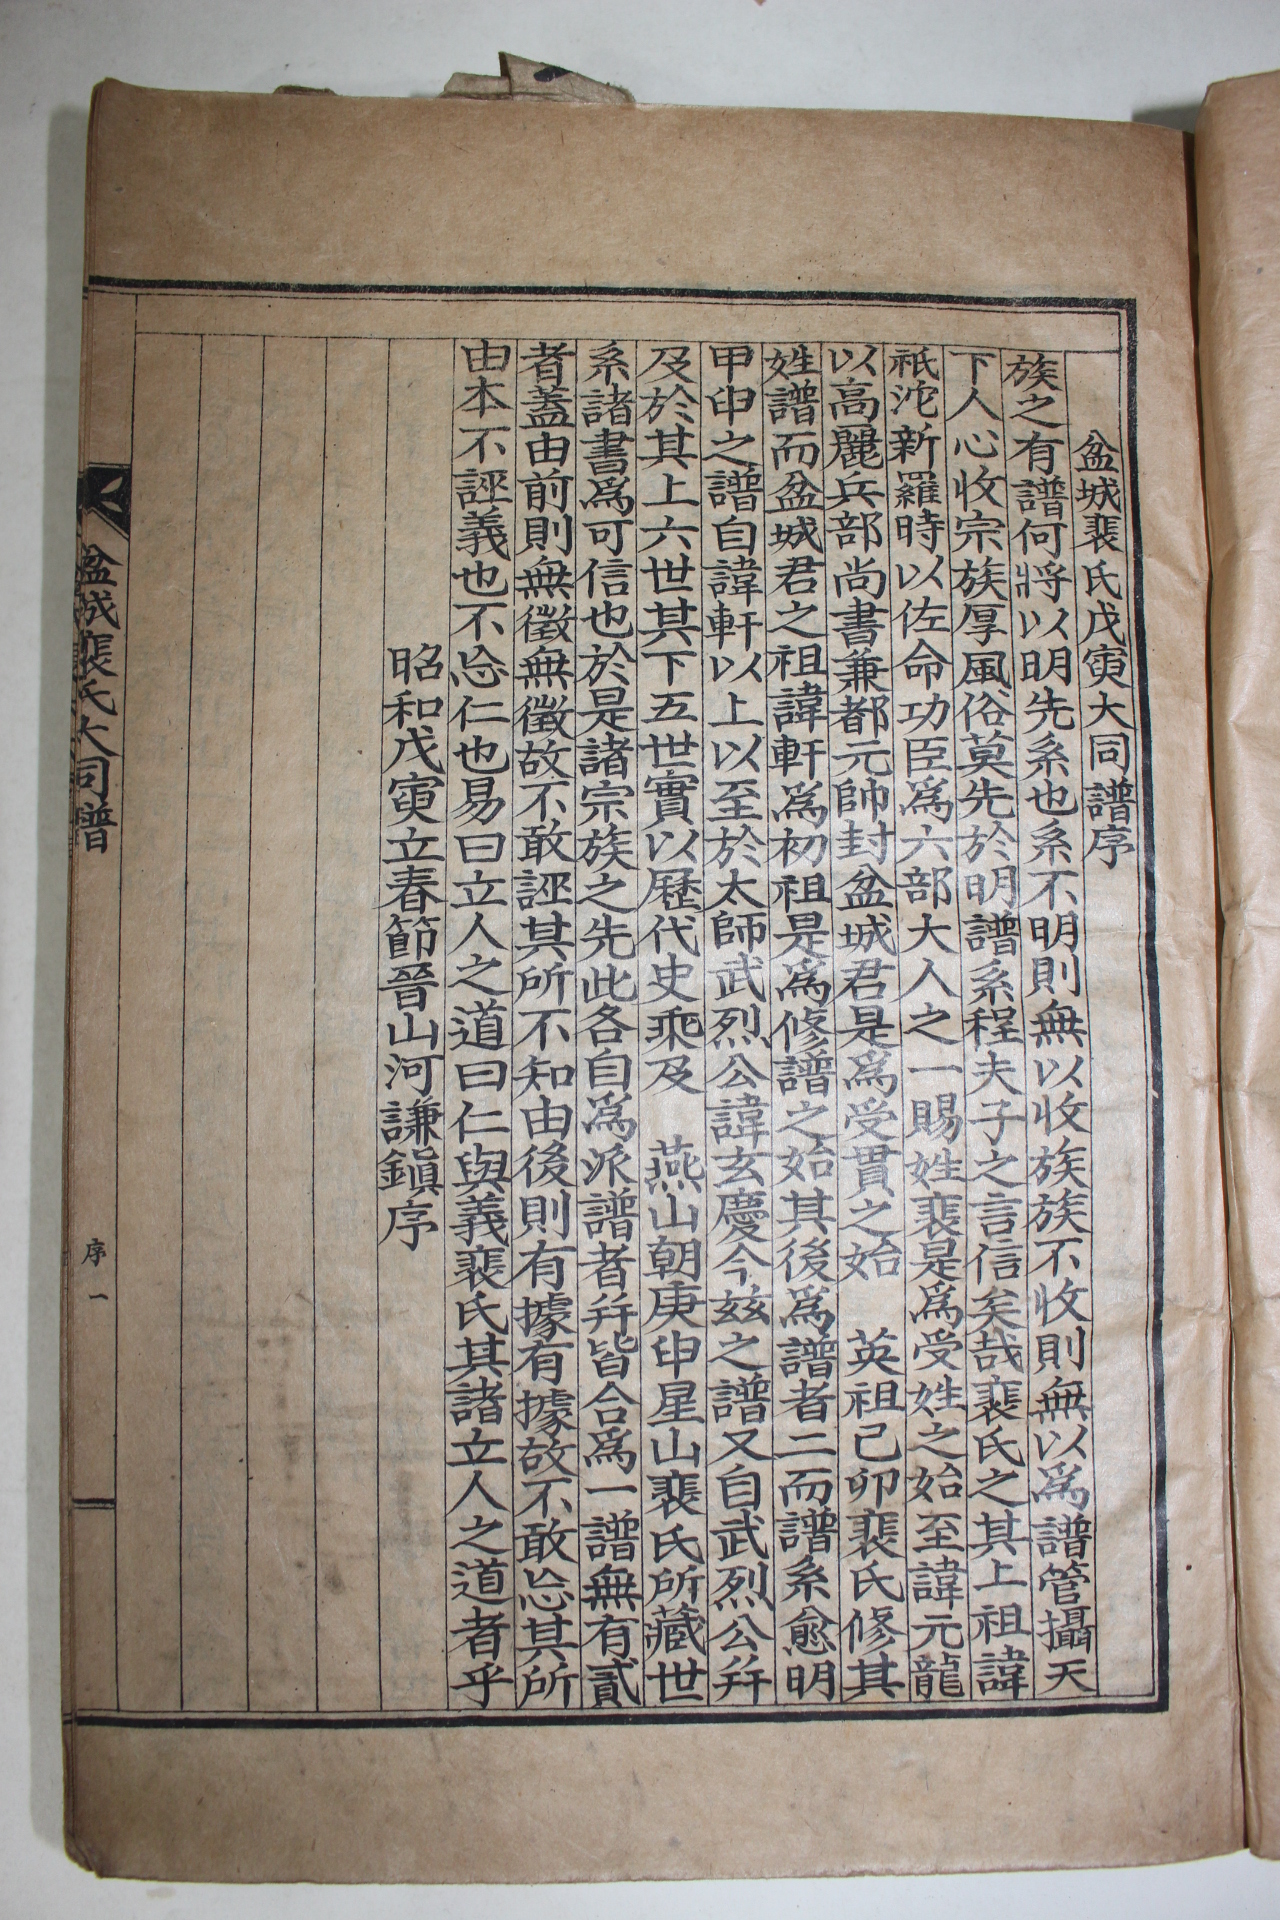 盆城裴氏戊寅大同譜序
族之有譜何將以明先系也系不明則無以收族族不收則無以爲譜管攝天
下人心收宗族厚風俗莫先於明譜系程夫子之言信矣哉裴氏之其上祖諱
祇沱新羅時以佐命功臣爲六部大人之一賜姓裴是爲受姓之始至諱元龍
以高麗兵部尚書兼都元帥封盆城君是爲受貫之始　英祖己卯裴氏修其
姓譜而盆城君之祖諱軒爲初祖是爲修譜之始其後爲譜者二而譜系愈明
甲申之譜自諱軒以上以至於太師武烈公諱玄慶今玆之譜又自武烈公幷
及於其上六世其下五世實以歷代史乘及　燕山朝庚申星山裴氏所藏世
系諸書爲可信也於是諸宗族之先此各自爲派譜者幷皆合爲一譜無有貳
者蓋由前則無徵無徵故不敢誣其所不知由後則有據有據故不敢忘其所
由本不誣義也不忘仁也易曰立人之道曰仁與義裴氏其諸立人之道者乎
昭和戊寅立春節晉山河謙鎭序
盆城裴氏大同譜
序
一